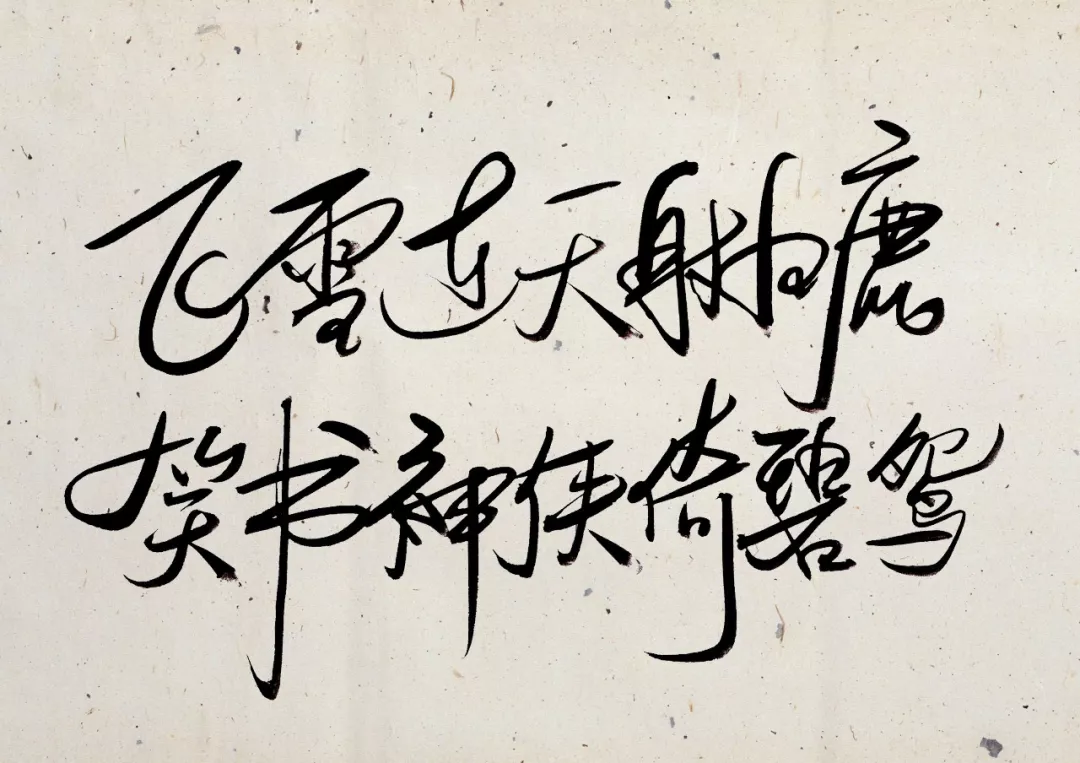 飞雪连天射白鹿
笑书神侠倚碧鸳